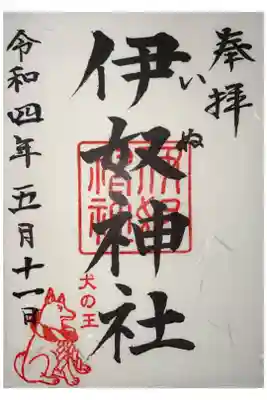 奉拝
伊奴神社
いぬ
令和四年五月十一日
犬の王